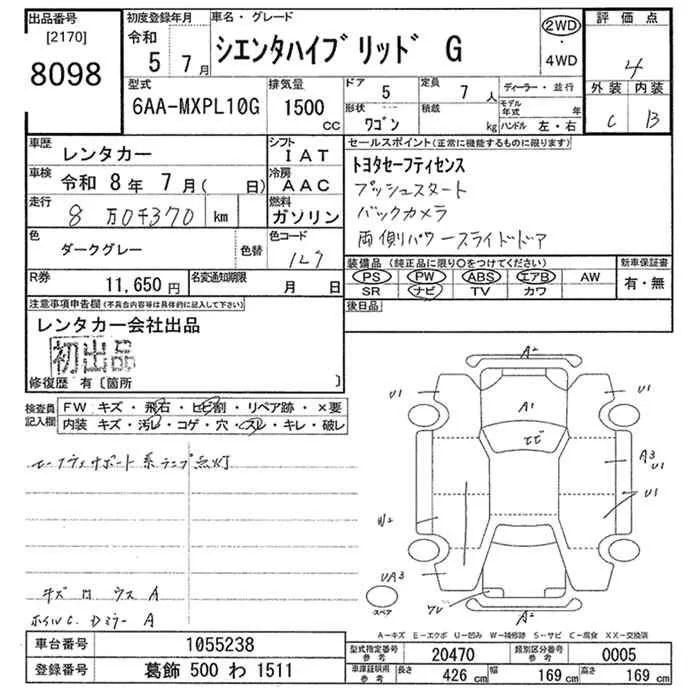 出品番号
[2170]
8098
初度登録年月
令和 5年 7月
車名・グレード
シエンタハイブリッド G
2WD
・
4WD
評価点
4
外装 内装
C B
型式
6AA-MXPL10G
排気量
1500 CC
ドア 5
形状 ワゴン
定員 7 人
積載 kg
ディーラー・並行
モデル年式 年
ハンドル 左・右
車歴 レンタカー
シフト IAT
車検 令和 8年 7月( 日)
冷房 AAC
走行 8万0千370 km
燃料 ガソリン
色 ダークグレー 色替
色コード 1L7
R券 11,650円
名変通知期限 月 日
セールスポイント(正常に機能するものに限ります)
トヨタセーフティセンス
プッシュスタート
バックカメラ
両側パワースライドドア
装備品(純正品に限り○をつけてください)
PS PW ABS エアB AW
SR ナビ TV カワ
新車保証書
有・無
後日品
注意事項申告欄(不具合内容等は具体的に記入して下さい)
レンタカー会社出品
初出品
修復歴 有〔箇所 〕
検査員記入欄
FW キズ・飛石・ヒビ割・リペア跡・×要
内装 キズ・汚レ・コゲ・穴・スレ・キレ・破レ
セーフティサポート系ランプ点灯
キズ 凹 ウス A
ホイルC. Dミラー A
A2
U1
U1
A1
ヒビ
A3
U1
U1
W2
UA3
スペア
A2
A−キズ E−エクボ U−凹み W−補修跡 S−サビ C−腐食 XX−交換済
車台番号 1055238
登録番号 葛飾 500 わ 1511
型式指定番号 参考 20470
類別区分番号 参考 0005
車庫証明用 参考 長さ 426 cm 幅 169 cm 高さ 169 cm